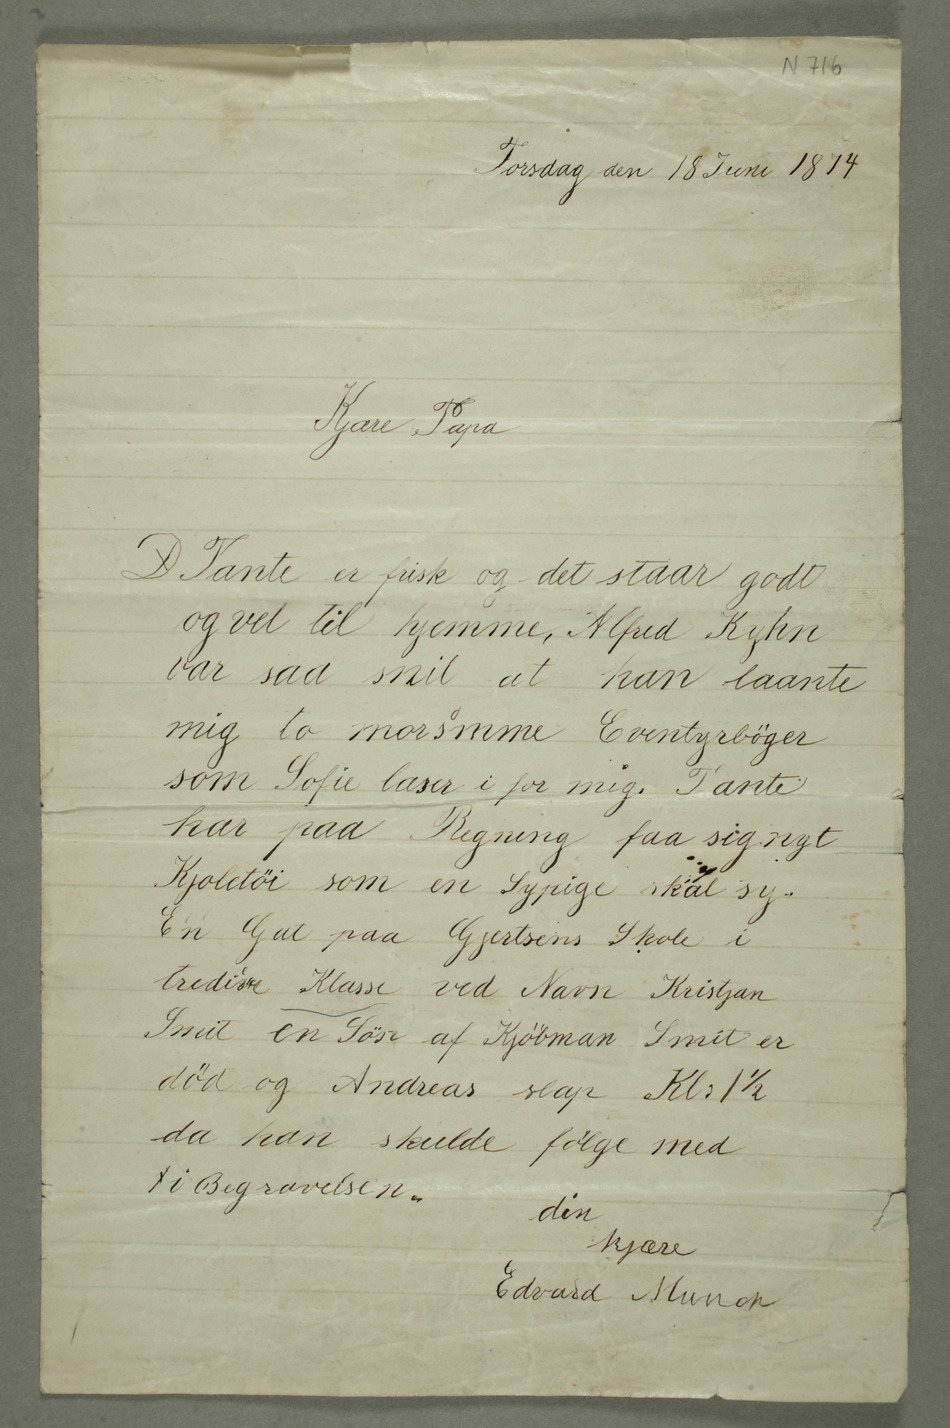 N 716
Torsdag den 18 Juni 1874
Kjære Papa
D Tante er frisk og det staar godt
og vel til hjemme, Alfred Kyhn
var saa snil at han laante
mig to morsomme Eventyrböger
som Sofie læser i for mig. Tante
har paa Regning faa sig nyt
Kjoletöi som en Sypige skal sy.
En Gut paa Gjertsens Skole i
tredive Klasse ved Navn Kristjan
Smit en Sön af Kjöbman Smit er
död og Andreas slap Kl: 1 1/2
da han skulde fölge med
i Begravelsen.
din
kjære
Edvard Munch